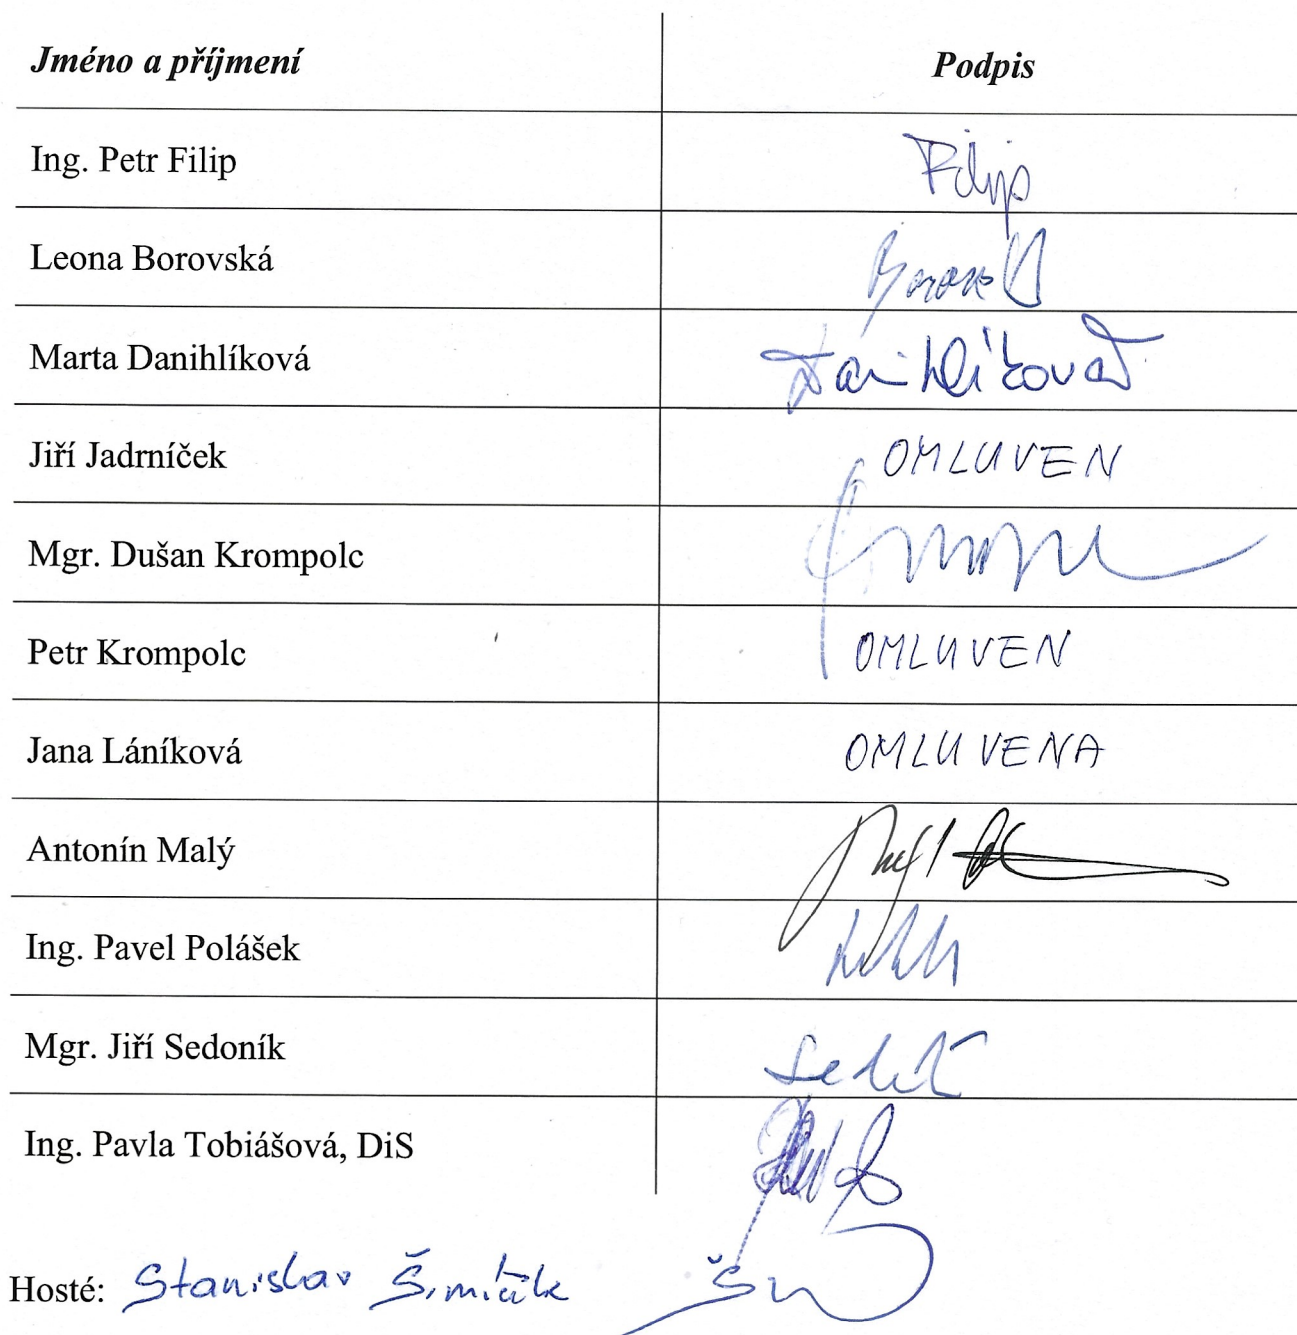 Jméno a příjmení Podpis
Ing. Petr Filip Filip
Leona Borovská
Marta Danihlíková Danihlíková
Jiří Jadrníček OMLUVEN
Mgr. Dušan Krompolc
Petr Krompolc OMLUVEN
Jana Láníková OMLUVENA
Antonín Malý
Ing. Pavel Polášek
Mgr. Jiří Sedoník
Ing. Pavla Tobiášová, DiS
Hosté: Stanislav